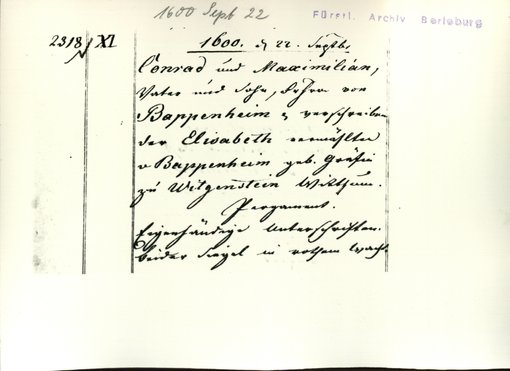 1600 Sept 22
Fürstl. Archiv Berleburg
2318 XI
1600. d 22. Septb.
Conrad und Maximilian,
Vater und Sohn, von
Bappenheim verschreiben
der Elisabeth vermählten
v Bappenheim geb. Gräfin
zu Witgenstein Witthum.
Pergament.
Eigenhändige Unterschriften.
beider Siegel in rothem Wachs